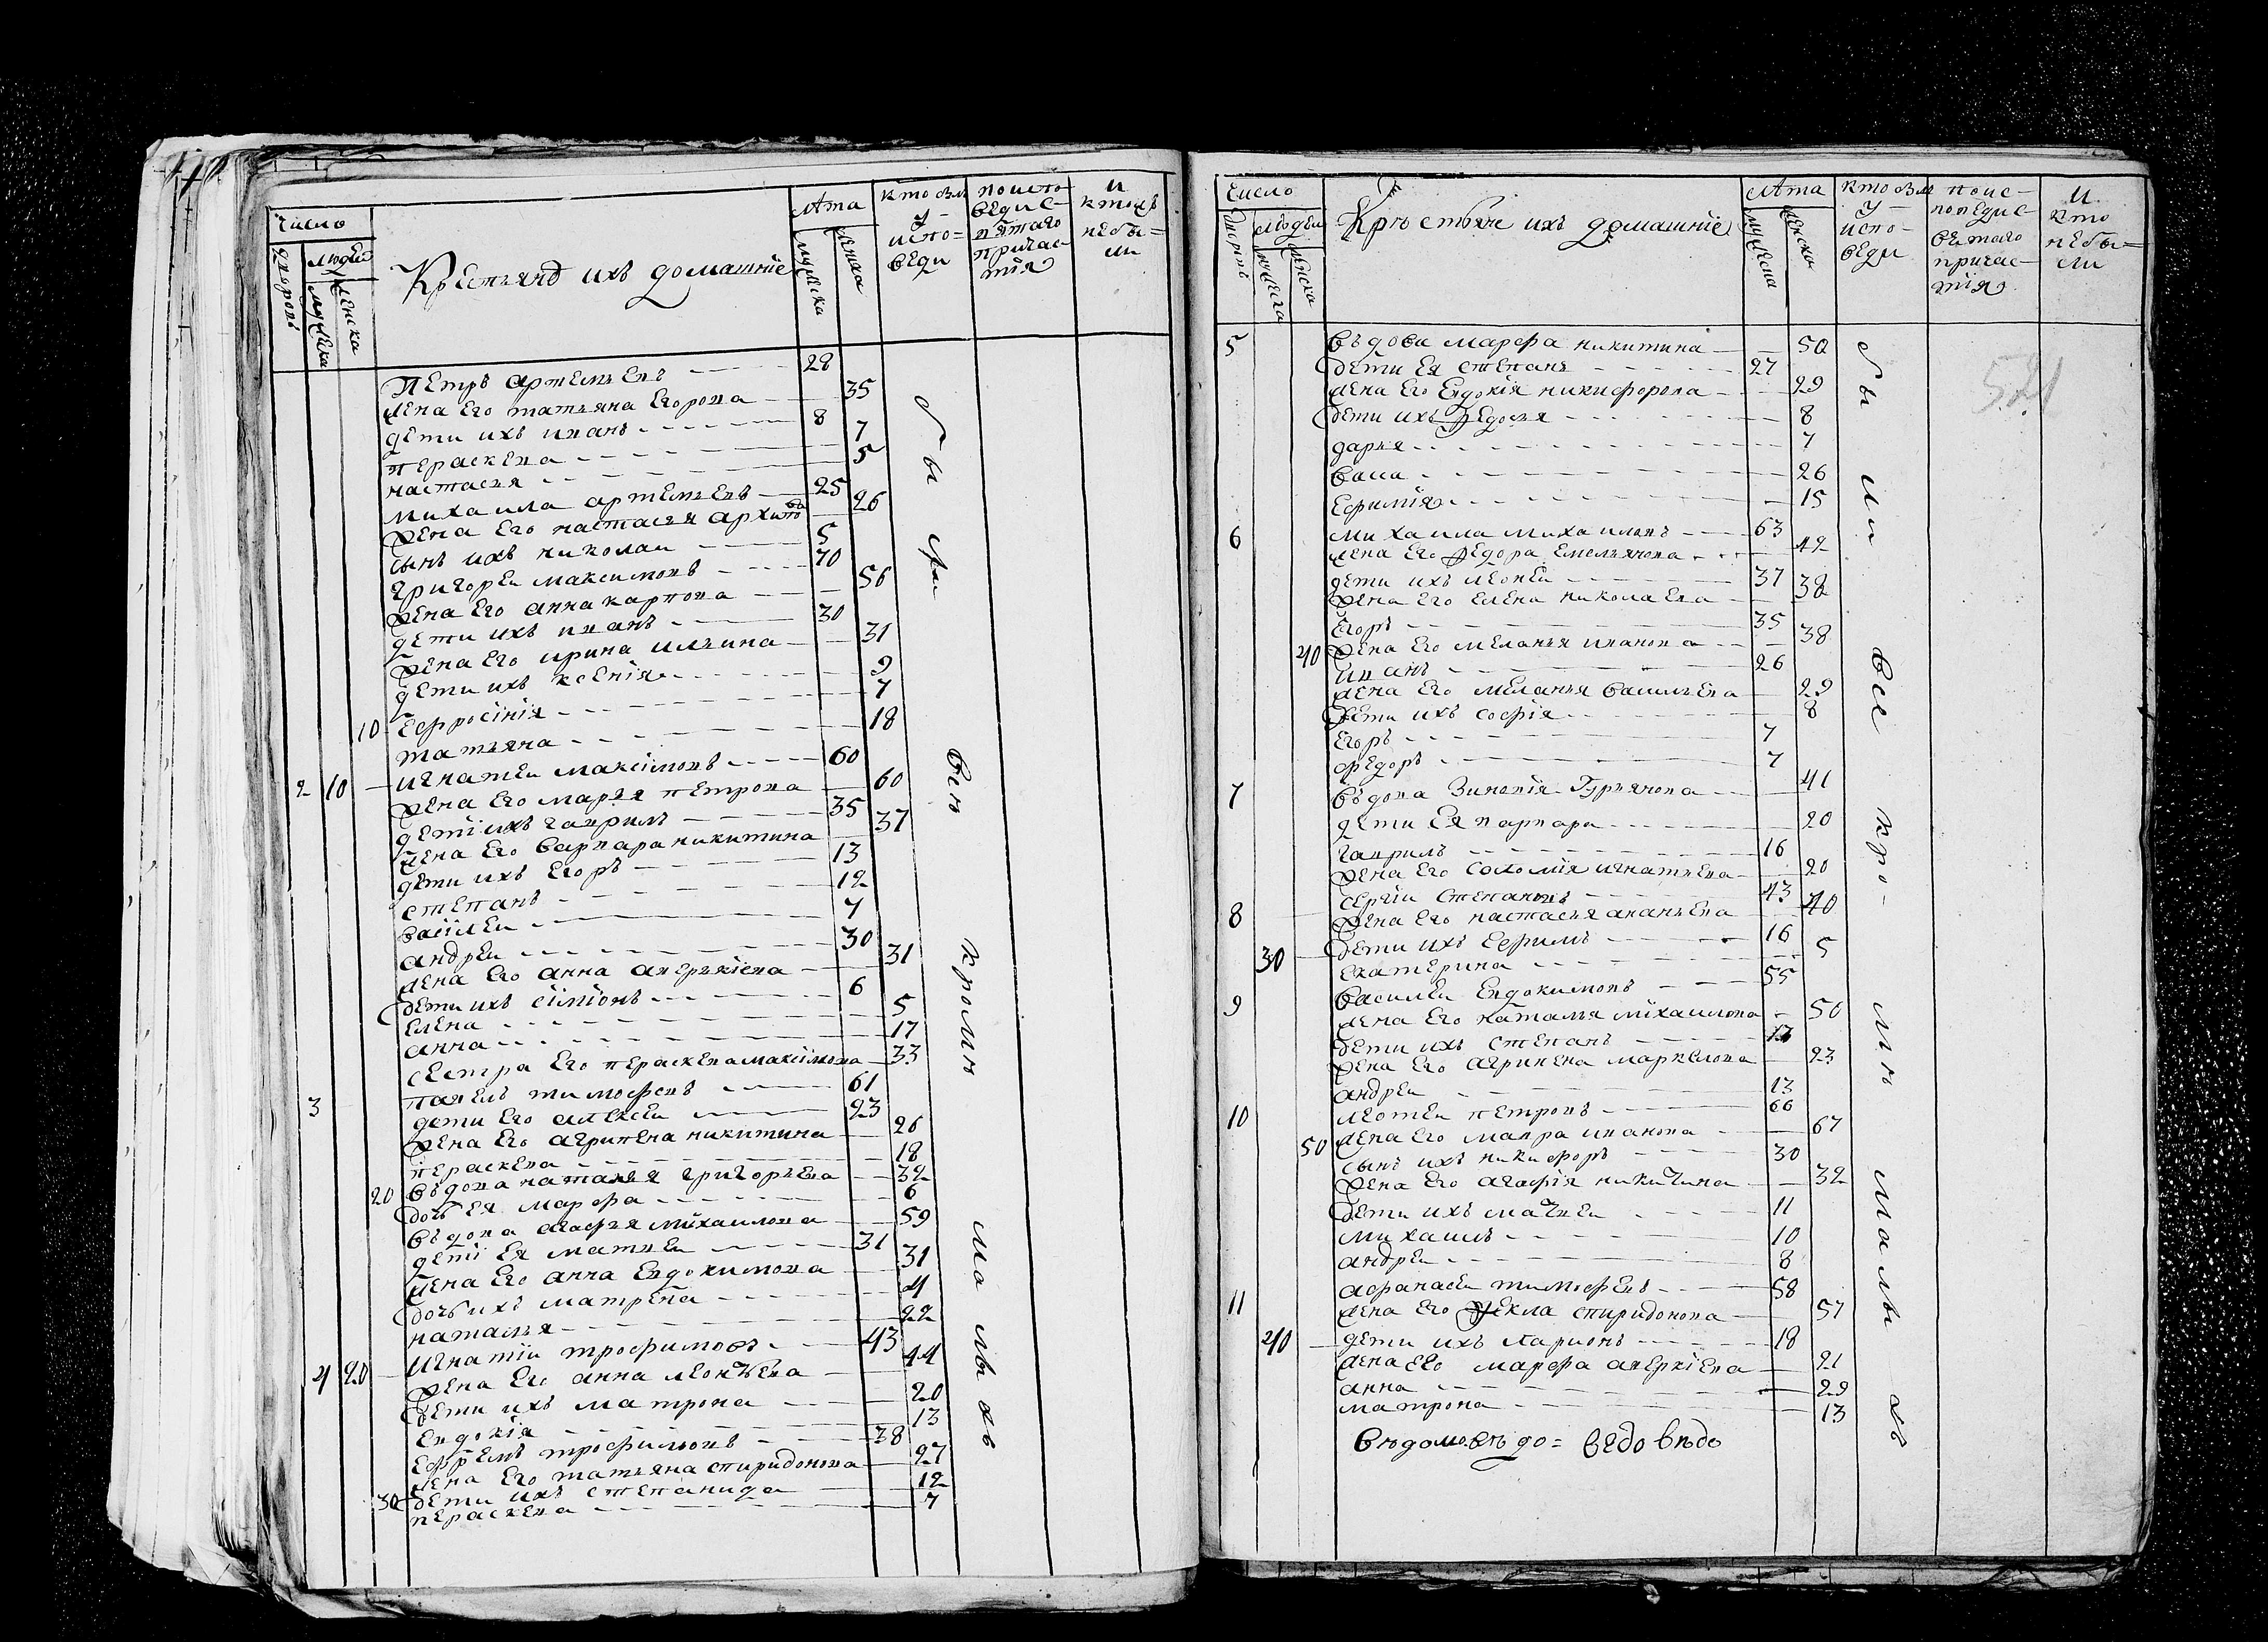 Число
дворовъ
людей
мужеска
женска
Крестьянѣ ихъ домашніе
лѣта
мужеска
женска
кто былъ
у
испо=
веди
поиспо
веди с
вятаго
причас
тія
и
кто ихъ
небы=
ли
Петръ артемьевъ 28
жена его татьяна егорова 35
дети ихъ иванъ 8
пераскева 7
настасья 5
михаила артемьевъ 25
жена его настасья архипова 26
сынъ ихъ николаи 5
григореи максимовъ 70
жена его анна карпова 56
дети ихъ иванъ 30
жена его ирина ильина 31
дети ихъ ксенія 9
10 ефросінія 7
татьяна 18
2 10 игнатеи максімовъ 60
жена его марья петрова 60
детї ихъ гаврилъ 35
жена его варвара никитина 37
дети ихъ егоръ 13
степанъ 12
васілеи 7
андреи 30
жена его анна аверкіева 31
дети ихъ сїмїонъ 6
елена 5
анна 17
сестра его пераскева максїмова 33
3 павелъ тимофеевъ 61
дети его алексеи 23
жена его агрипена никитина 26
пераскева 18
20 въдова наталья григорьева 32
дочь ея марфа 6
въдова агафья міхаилова 59
детї ея матвеи 31
жена его анна евдокимова 31
дочь ихъ матрена 4
наталья 22
4 20 игнатіи трофимовъ 43
жена его анна леонтьева 44
дети ихъ матрона 20
евдокія 13
ефремъ трофимовъ 38
жена его татьяна спиридонова 27
30 дети ихъ степанида 12
пераскева 7
были
всѣ
кромѣ
малыхъ
Число
дворовъ
людеи
мужеска
женска
Крѣстьяне ихъ домашніе
лѣта
мужеска
женска
кто был
у
испо=
веди
поис
поведи с
ветаго
причас
тія
и
кто
небы=
ли
5 въдова марфа никитина 50
дети ея степанъ 27
жена его евдокія никифорова 29
дети ихъ федосья 8
дарья 7
васса 26
ефимія 15
6 михаила михаиловъ 63
жена его федора емельянова 42
дети ихъ леонеи 37
жена его елена николаева 38
егоръ 35
40 жена его меланья иванова 38
иванъ 26
жена его меланья васильева 29
дети ихъ софія 8
егоръ 7
федоръ 7
7 въдова Зиновія Гурьянова 41
дети ея варвара 20
гаврилъ 16
жена его соломія игнатьева 20
8 сергіи степановъ 43
жена его настасья ананьева 40
30 дети ихъ ефимъ 16
екатерина 5
9 василеи евдокимовъ 55
жена его наталья міхаилова 50
дети ихъ степанъ
жена его агрипена маркелова 23
андреи 13
10 леотеи петровъ 66
50 жена его мавра иванова 67
сынъ ихъ никифоръ 30
жена его агафія никитина 32
дети ихъ матвеи 11
михаилъ 10
андреи 8
11 афанасеи тимофеевъ 58
жена его фекла спиридонова 57
40 дети ихъ ларионъ 18
жена его марфа аверкіева 21
анна 29
матрона 13
были
всѣ
кро-
мѣ
малы
хъ